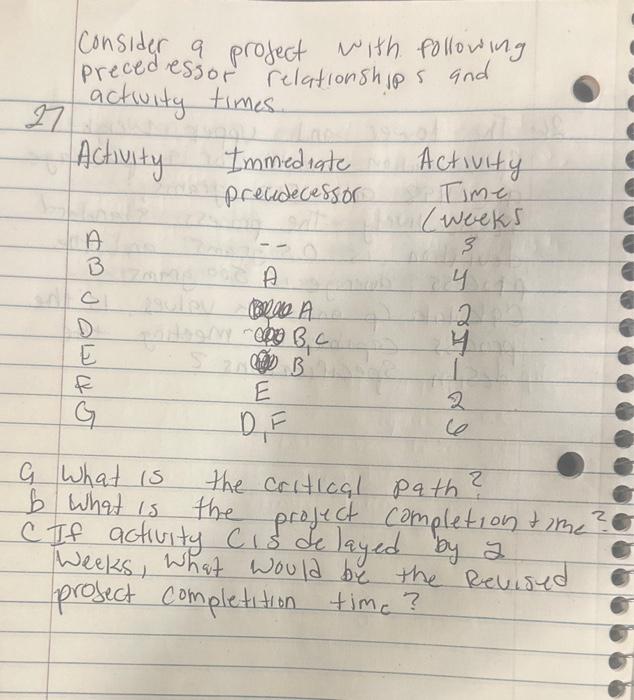 Consider a project with following
precedessor relationships and
activity times.
27
Activity Immediate Activity
preudecessor Time
(weeks
A -- 3
B A 4
C A 2
D B, C 4
E B 1
F E 2
G D, F 6
a What is the critical path?
b What is the project completion time?
C If activity C is delayed by 2
weeks, what would be the Revised
project completition time?